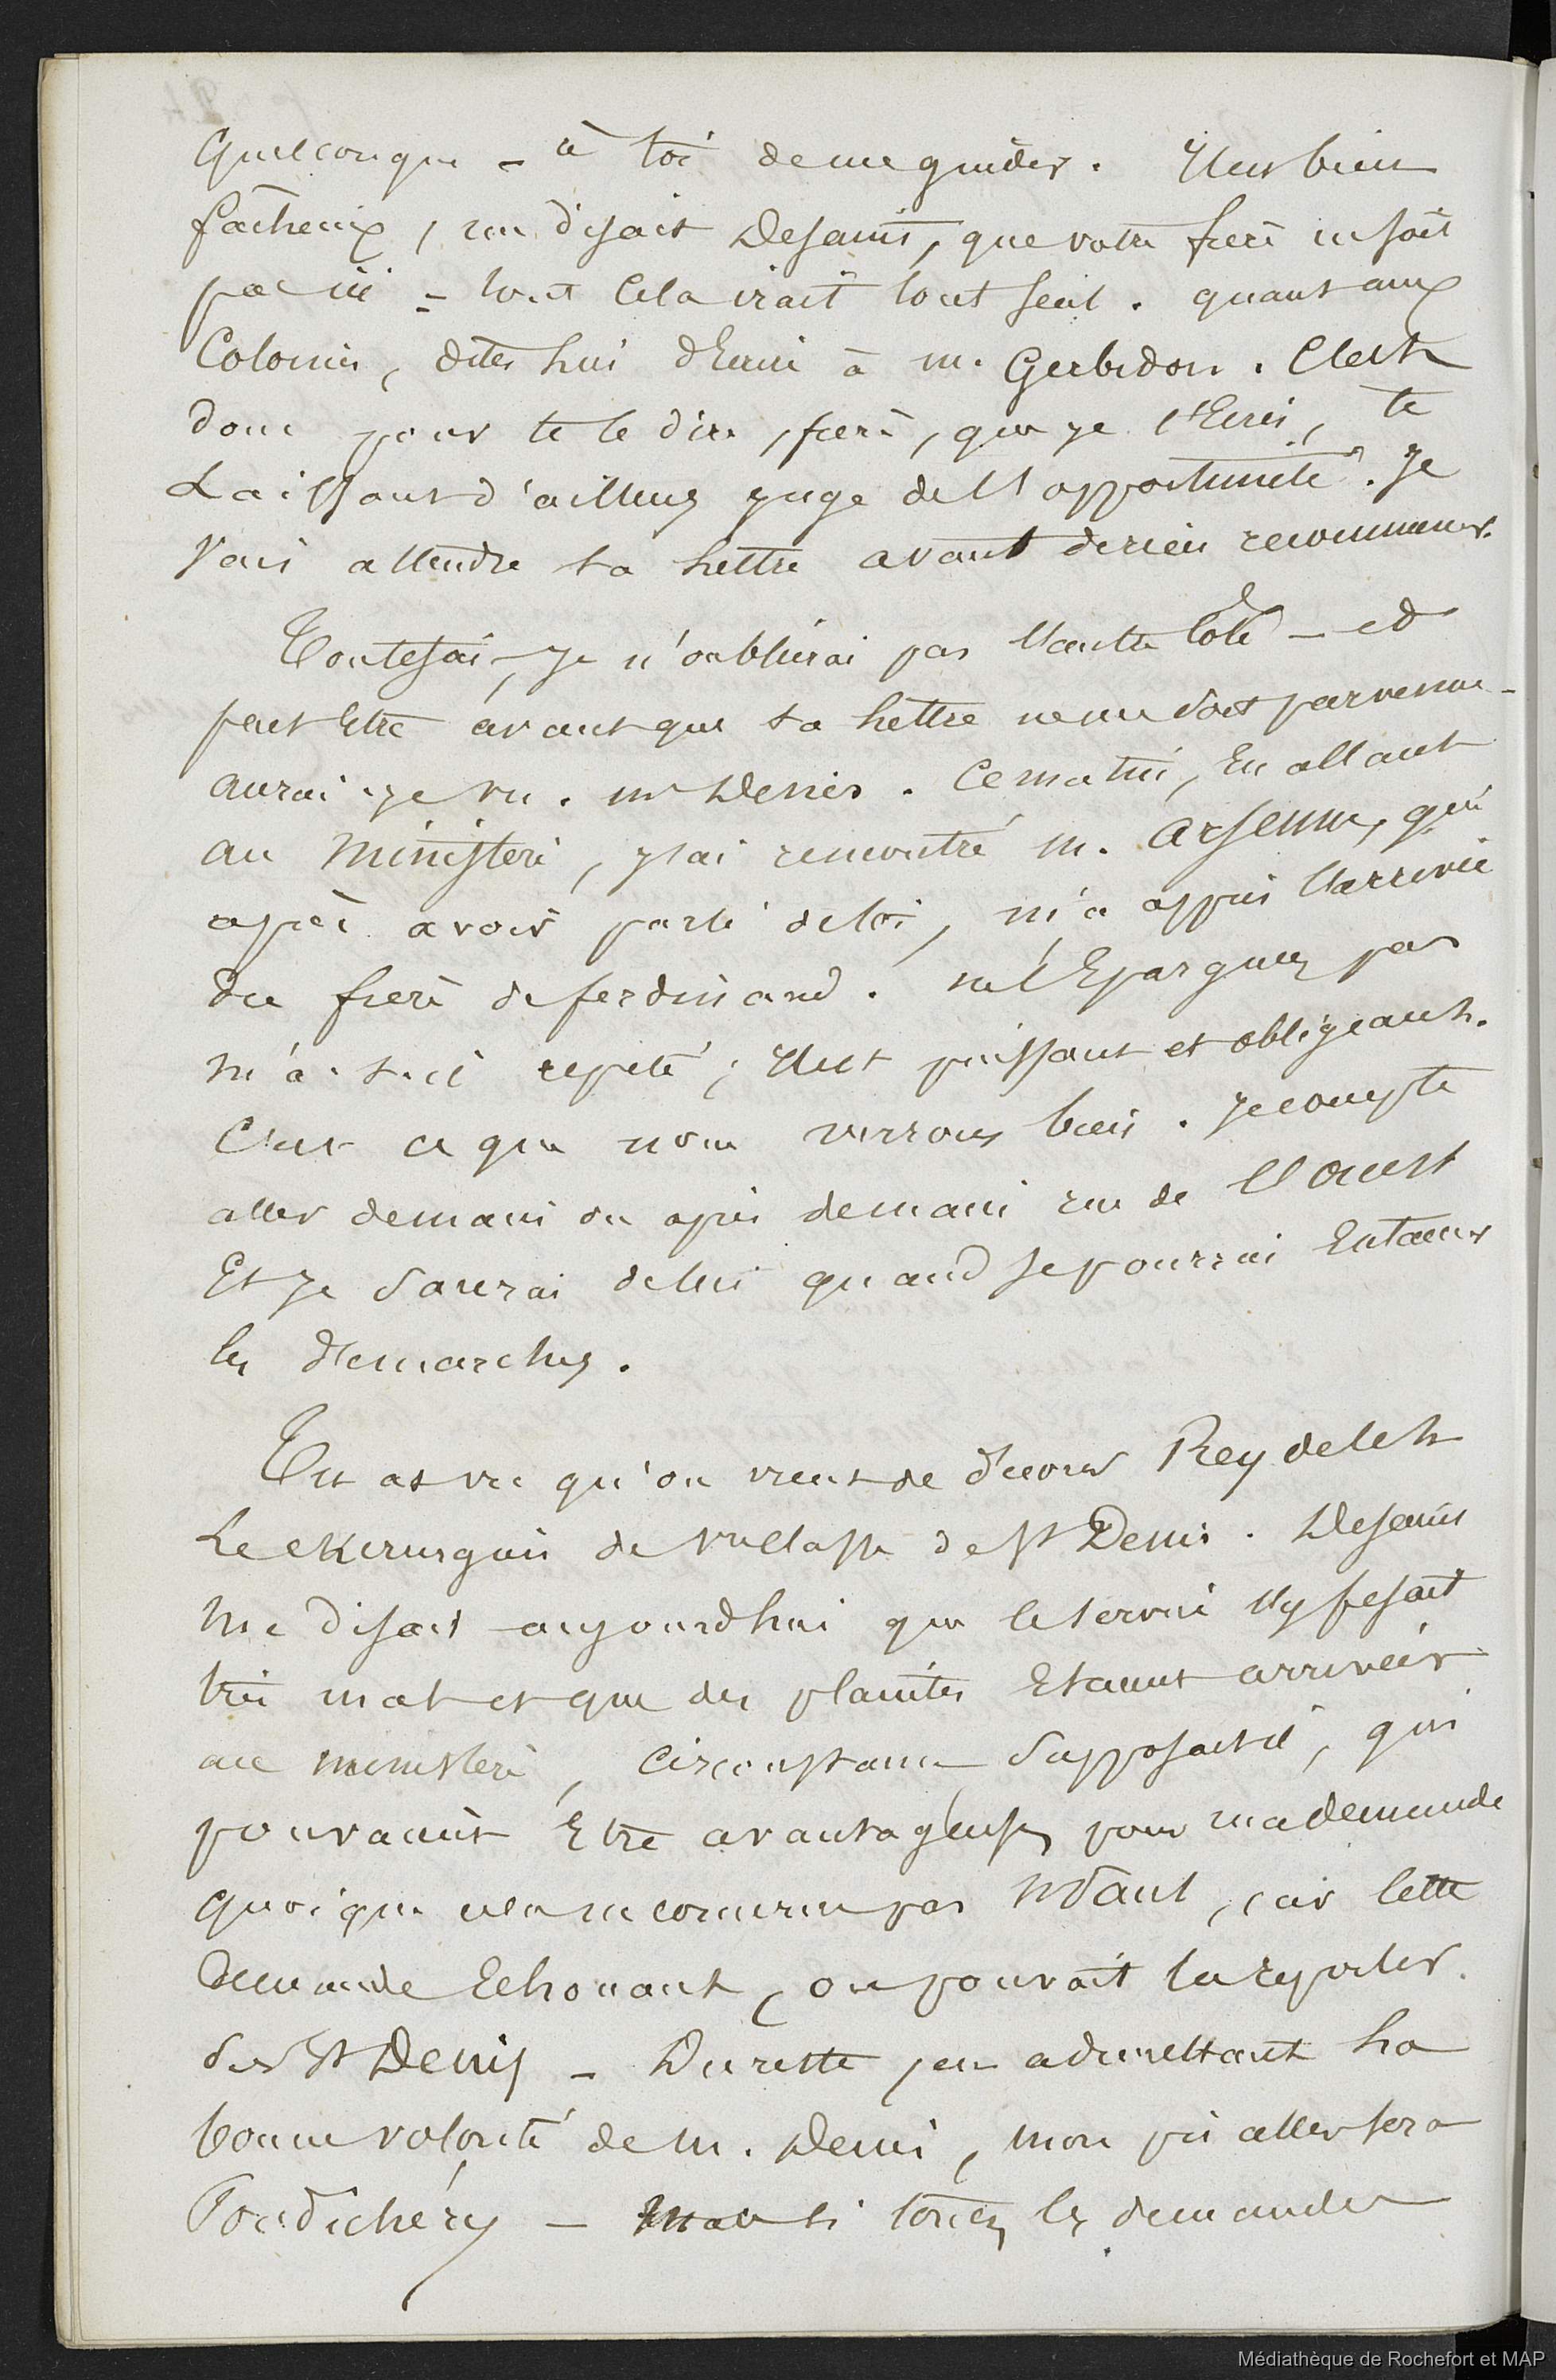 quelconque – à toi de me guider. Il est bien
fâcheux, me disait Desaint, que votre frère ne soit
pas ici – tout cela irait tout seul. quant aux
Colonies, dites lui d'Ecrire à m. Gerbidon. C'est
donc pour te le dire, frère, que je t'Ecris, te
Laissant d'ailleurs juge de l'opportunité. Je
Vais attendre ta lettre avant de rien recommencer.
Toutefois, je n'oublierai pas l'autre Coté – et
peut Etre avant que ta lettre ne me soit parvenue –
aurai-je vu. mr Denis. Ce matin, En allant
au ministère, j'ai rencontré m. Arsenne, qui
après avoir parlé de toi, m'a appris l'arrivée
du frère de ferdinand. ne l'Epargnez pas
m'a-t-il repeté; Il est puissant et obligeant.
C'est ce que nous verrons bien. Je compte
aller demain ou après demain rue de l'ouest
Et je saurai de lui quand je pourrai Entamer
les demarches.
Tu as vu qu'on vient de décorer Reydelet
Le chirurgien de 1re classe de St Denis. Desaint
me disait aujourd'hui que le service s'y fesait
très mal et que des plaintes Etaient arrivées
au ministère, Circonstance disait il, qui
pouvaient Etre avantageuses pour ma demande
quoique cela ne concerne pas , car cette
Demande Echouant, on pouvait la reporter
sur St Denis – Du reste, en admettant la
bonne volonté de m. Denis, mon pis aller sera
Pondichéry – mais si toutes les demandes